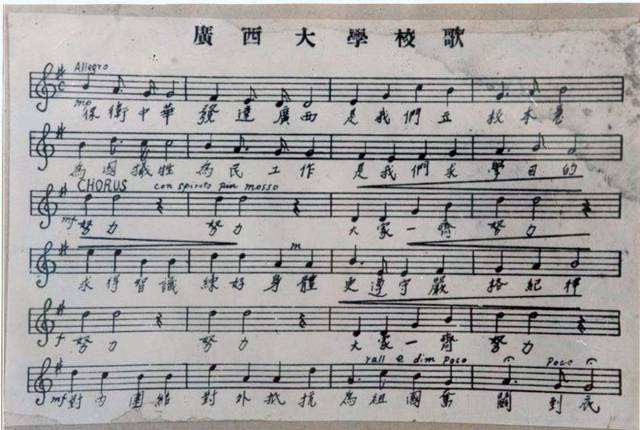 廣西大學校歌
Allegro
mp
保衛中華 發達廣西 是我們立校本意
為國犧牲 為民工作 是我們求學目的
CHORUS con spirito piu mosso
mf
努力 努力 大家一齊 努力
m
求得智識 練好身體 更遵守嚴格紀律
f
努力 努力 大家一齊 努力
rall e dim poco poco
mf
對內團結 對外抵抗 為祖國奮鬪到底